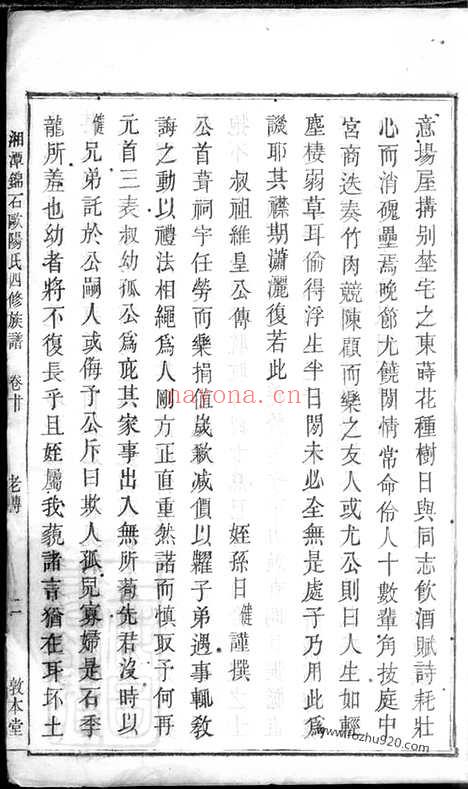 意場屋搆別墊宅之東蒔花種樹日與同志飲酒賦詩耗壯
心而消磈壘焉晚節尤饒閒情常命伶人十數輩角技庭中
宮商迭奏竹肉競陳顧而樂之友人或尤公則曰人生如輕
塵棲弱草耳偷得浮生半日閒未必全無是處子乃用此爲
譏耶其襟期瀟灑復若此
叔祖維皇公傳
姪孫日健謹撰
公首葺祠宇任勞而樂捐值歲歉減價以糶子弟遇事輒教
誨之動以禮法相繩爲人剛方正直重然諾而愼取予何再
元首三表叔幼孤公爲庀其家事出入無所蓊先君沒時以
健兄弟託於公嗣人或侮予公斥曰欺人孤兒寡婦是石季
龍所羞也幼者將不復長乎且姪屬我藐諸言猶在耳坏土
湘潭錦石歐陽氏四修族譜
卷廿
老傳
二
敦本堂
https://fozhu920.com